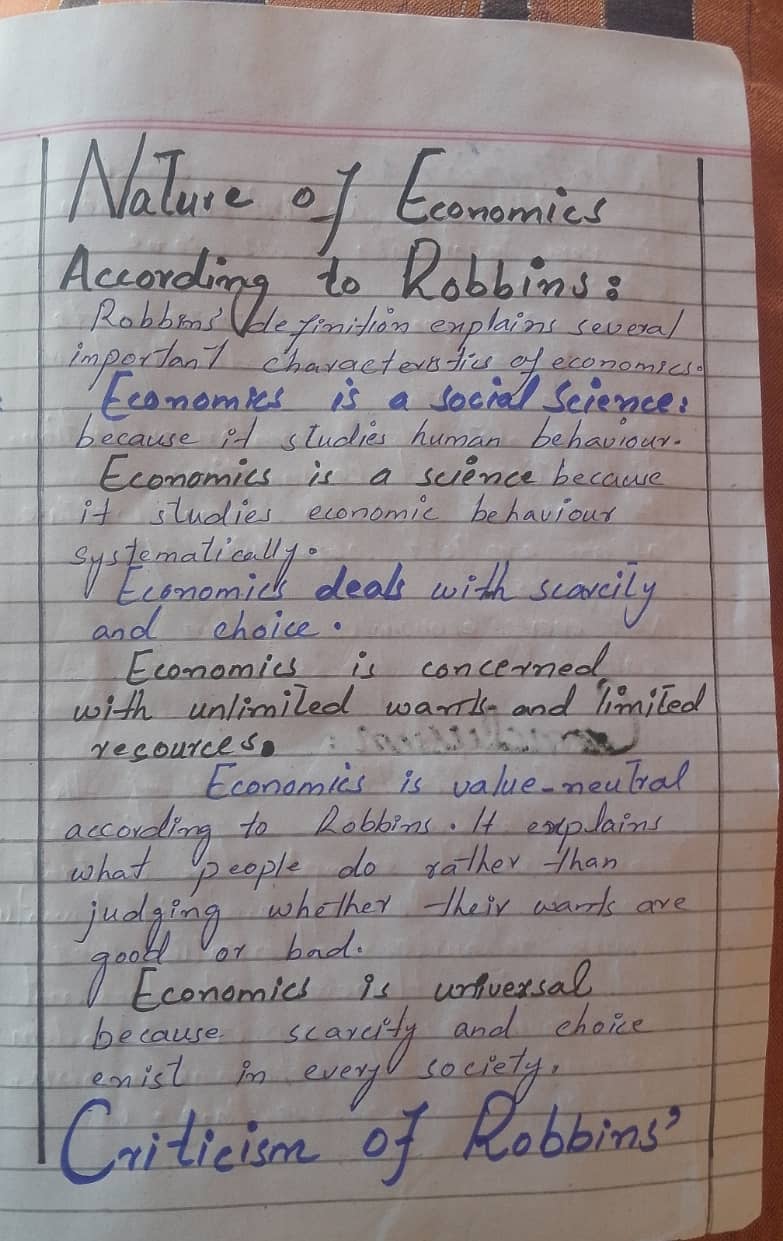 Nature of Economics
According to Robbins:
Robbins' definition explains several
important characteristics of economics.
Economics is a social Science:
because it studies human behaviour.
Economics is a science because
it studies economic behaviour
systematically.
Economics deals with scarcity
and choice.
Economics is concerned
with unlimited wants and limited
resources.
Economics is value-neutral
according to Robbins. It explains
what people do rather than
judging whether their wants are
good or bad.
Economics is universal
because scarcity and choice
exist in every society.
Criticism of Robbins'